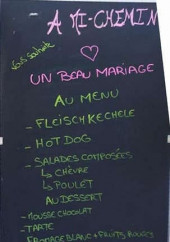 - A MI-CHEMIN
Vous souhaite
UN BEAU MARIAGE
AU MENU
- FLEISCHKECHELE
- HOT DOG
- SALADES COMPOSÉES
↳ CHÈVRE
↳ POULET
AU DESSERT
- MOUSSE CHOCOLAT
- TARTE
FROMAGE BLANC + FRUITS ROUGES